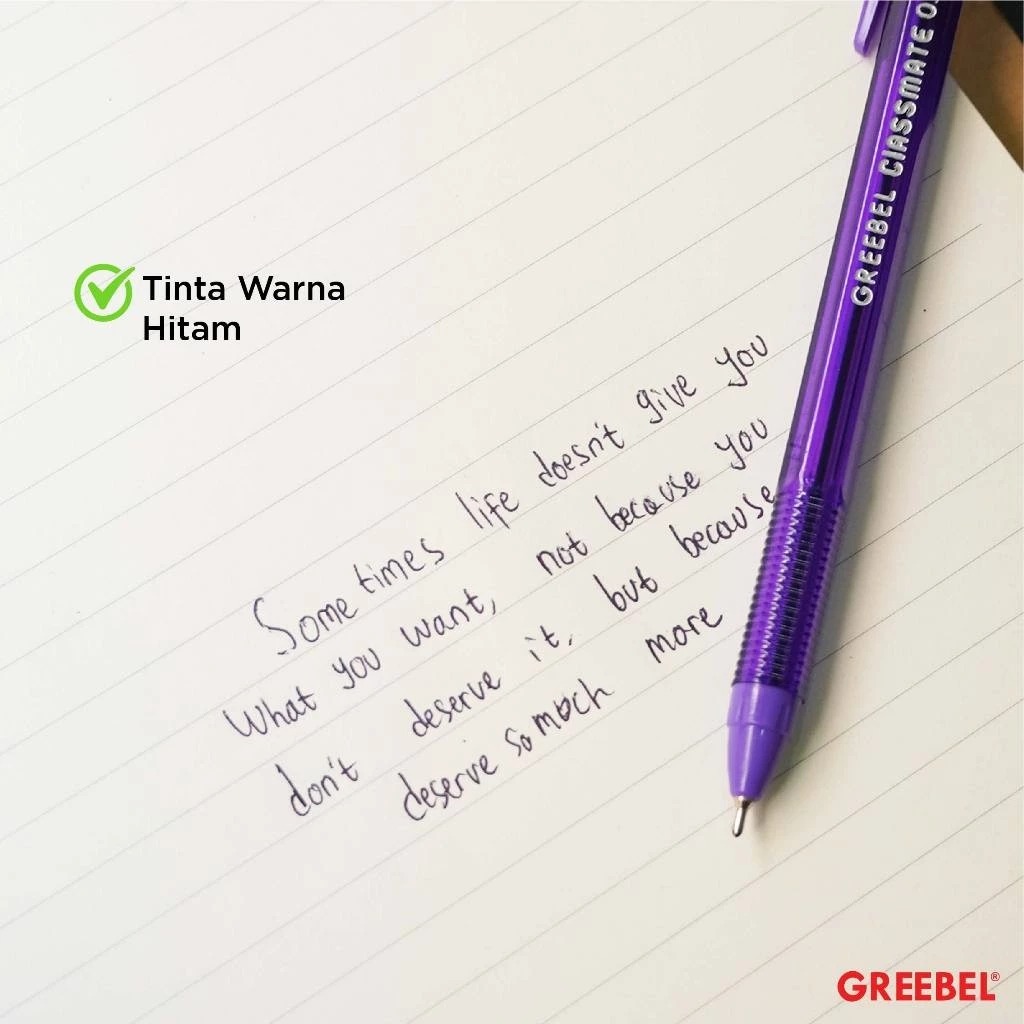 GREEBEL CLASSMATE 0.
Tinta Warna
Hitam
Some times life doesn't give you
What you want, not because you
don't deserve it, but because
deserve so much more
GREEBEL®